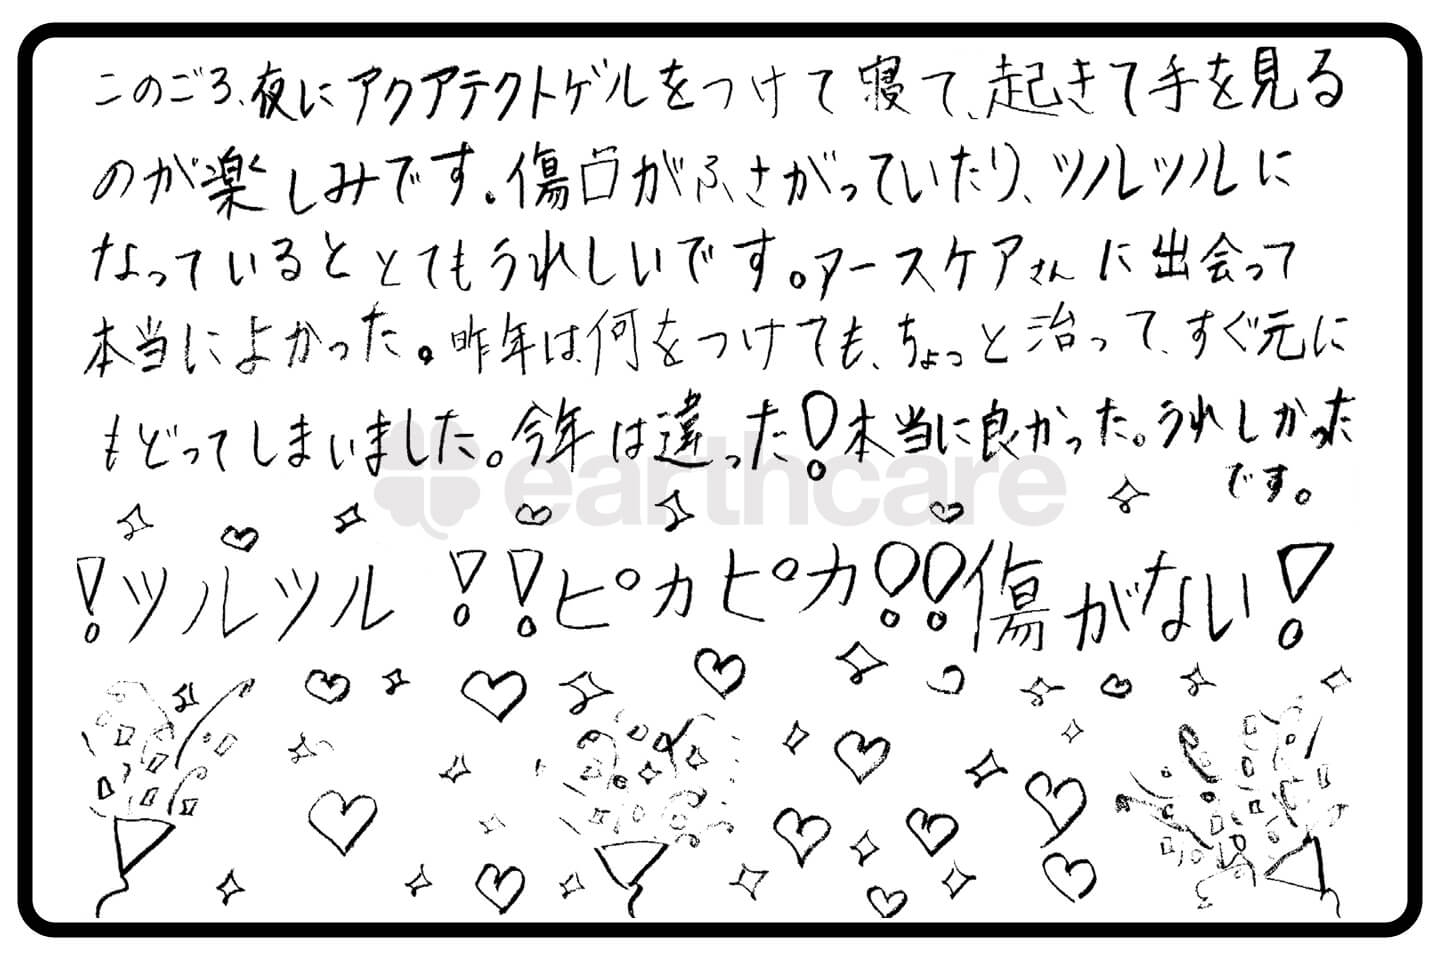 このごろ、夜にアクアテクトゲルをつけて寝て、起きて手を見る
のが楽しみです。傷口がふさがっていたり、ツルツルに
なっているととてもうれしいです。アースケアさんに出会って
本当によかった。昨年は何をつけても、ちょっと治って、すぐ元に
もどってしまいました。今年は違った!本当に良かった。うれしかった
です。
earthcare
!ツルツル!!ピカピカ!!傷がない!